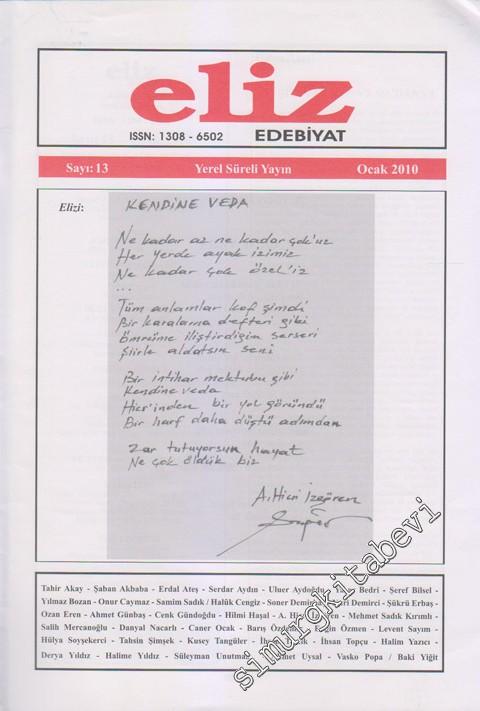 eliz
ISSN: 1308 - 6502 EDEBİYAT
Sayı: 13 Yerel Süreli Yayın Ocak 2010
Elizi: KENDİNE VEDA
Ne kadar az ne kadar çok'uz
Her yerde ayak izimiz
Ne kadar çok özel'iz
...
Tüm anlamlar kof şimdi
Bir karalama defteri gibi
Ömrüme iliştirdiğin serseri
Şiirle aldatsın seni
Bir intihar mektubu gibi
Kendine veda
Hicr'inden bir yol göründü
Bir harf daha düştü adımdan
Zar tutuyorsun hayat
Ne çok öldük biz
A. Hicri İzgören
Tahir Akay - Şaban Akbaba - Erdal Ateş - Serdar Aydın - Uluer Aydoğdu - Bedri - Şeref Bilsel -
Yılmaz Bozan - Onur Caymaz - Samim Sadık / Halûk Cengiz - Soner Demirbaş - Demirci - Şükrü Erbaş -
Ozan Eren - Ahmet Günbaş - Cenk Gündoğdu - Hilmi Haşal - A. Hicri İzgören - Mehmet Sadık Kırımlı -
Salih Mercanoğlu - Danyal Nacarlı - Caner Ocak - Barış Özdemir - Engin Özmen - Levent Sayım -
Hülya Soyşekerci - Tahsin Şimşek - Kusey Tangüler - İhsan Topçu - Halim Yazıcı -
Derya Yıldız - Halime Yıldız - Süleyman Unutmaz - Ahmet Uysal - Vasko Popa / Baki Yiğit
simurgkitabevi